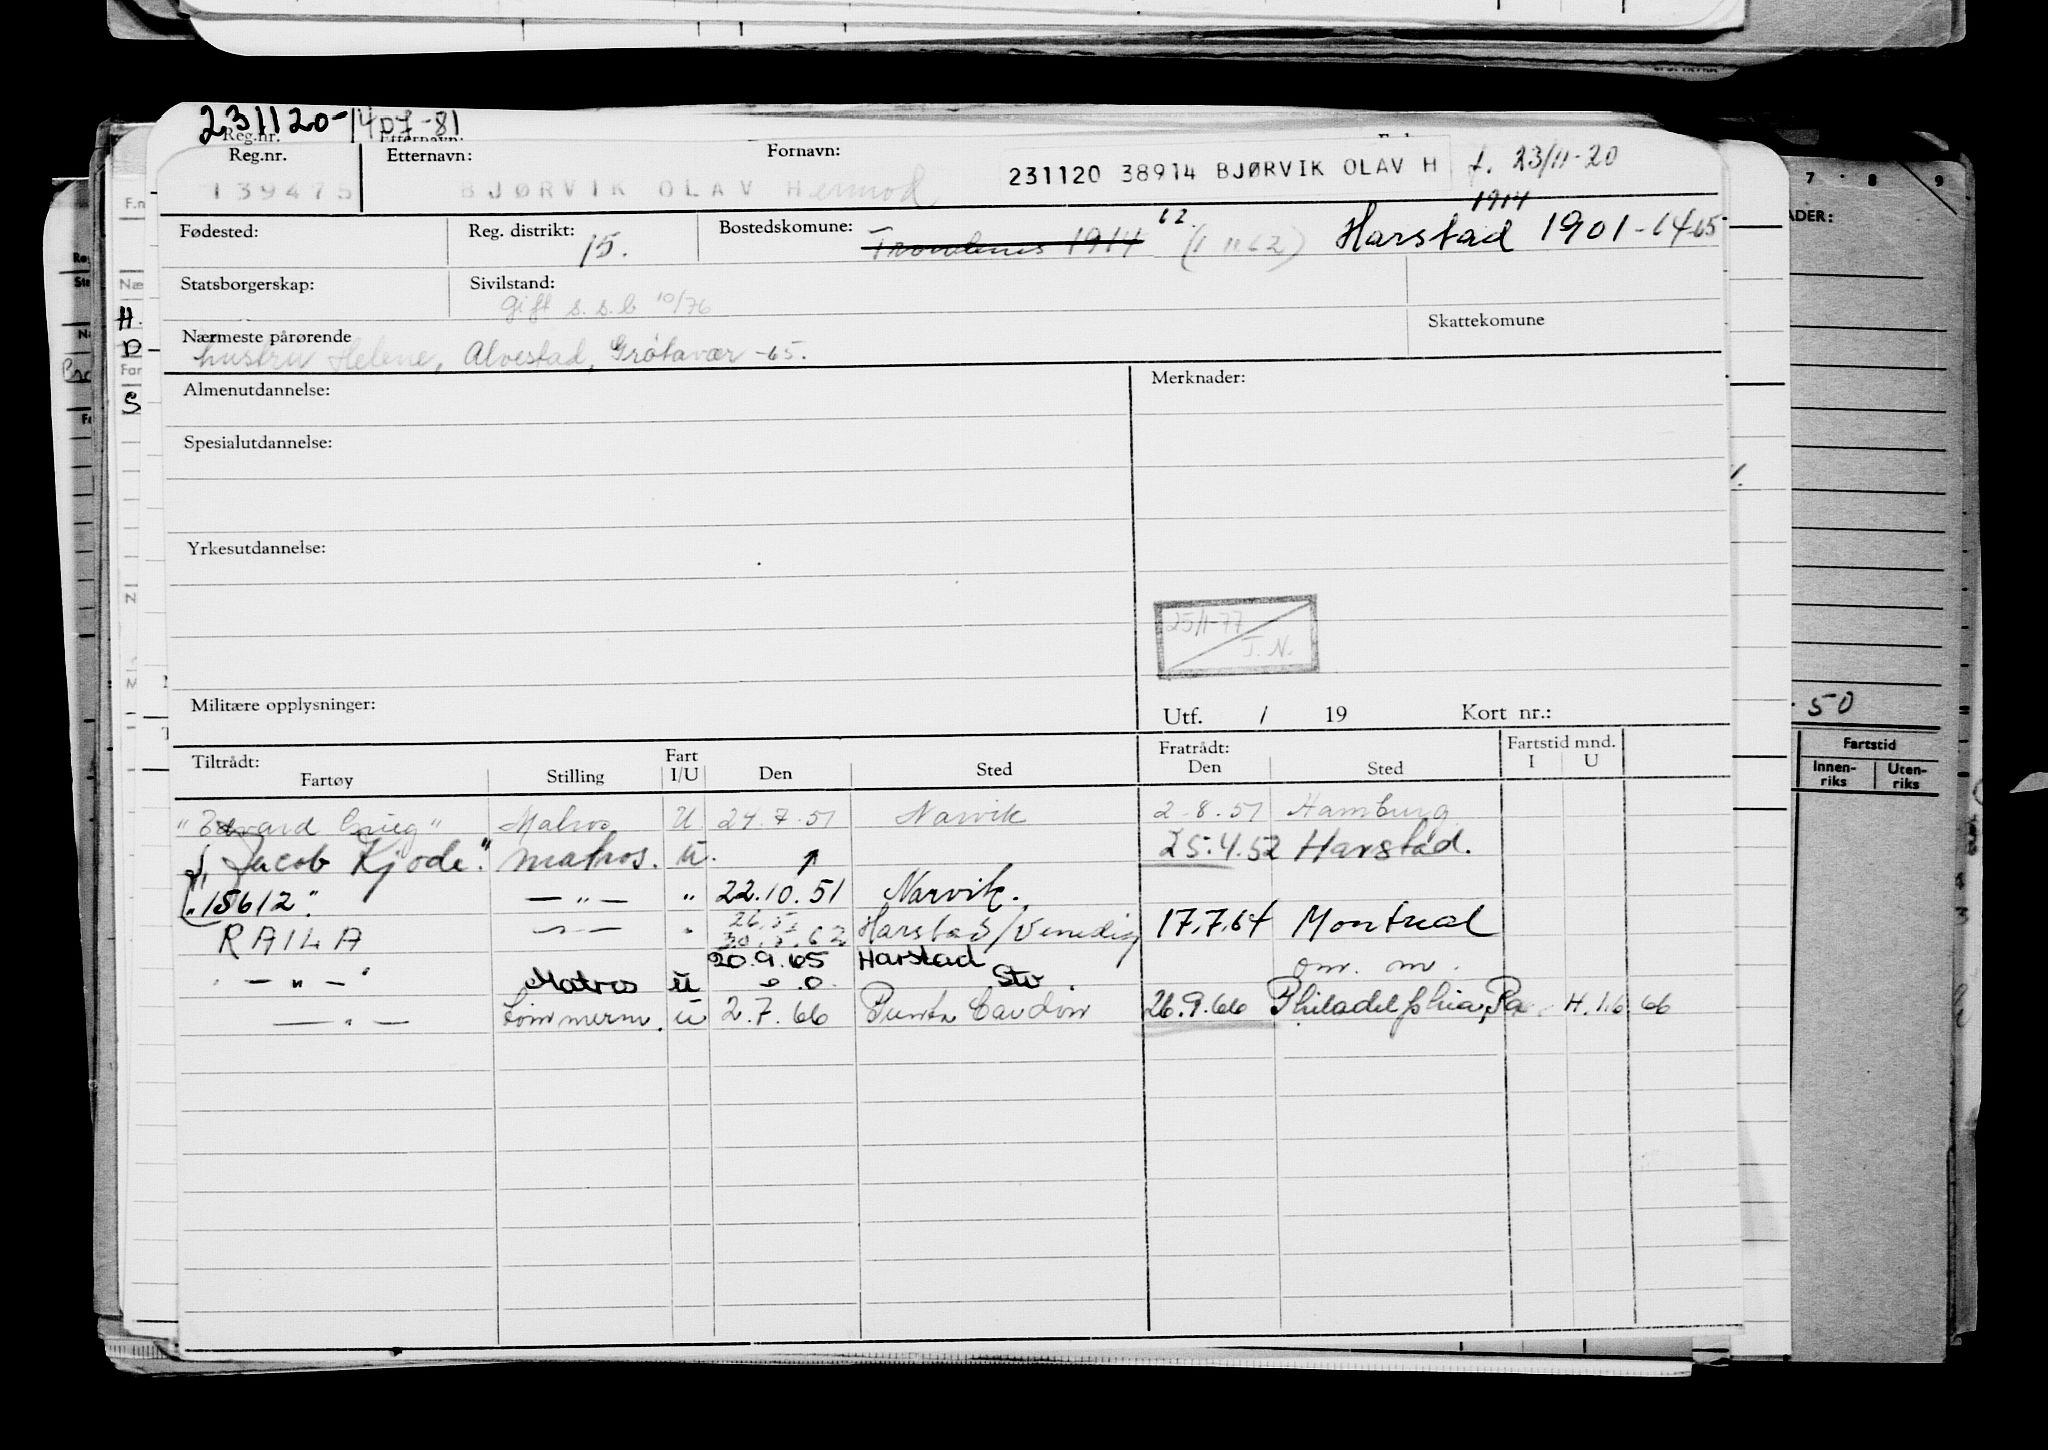 231120-
407-81
Reg.nr. Etternavn:
Reg.nr. Etternavn: Fornavn:
139475 BJØRVIK OLAV Hermod 231120 38914 BJØRVIK OLAV H f. 23/11-20
Fødested: Reg. distrikt: 15. Bostedskomune: Trondenes 1914 62. (1 11 62) 1914 Harstad 1901-14-65
Statsborgerskap: Sivilstand: Gift s.s.b 10/76
Nærmeste pårørende Skattekomune
hustru Helene, Alvestad, Grøtavær -65.
Almenutdannelse: Merknader:
Spesialutdannelse:
Yrkesutdannelse:
25/1-77
T.N.
Militære opplysninger: Utf. / 19 Kort nr.:
Tiltrådt: Fart Fratrådt: Fartstid mnd.
Fartøy Stilling I/U Den Sted Den Sted I U
"Edvard Grieg" Matros U 24.7.51 Narvik 2-8.51 Hamburg
"Jacob Kjøde." matros. U. 25.4.52 Harstad.
"15612". — " — " 22.10.51 Narvik.
RAILA — " — " 26.5 30.5.62 Harstad/Venedig 17.7.64 Montreal
20.9.65 Harstad
— " — " Matros U Stv. om. m.
— " — U 2.7.66 Punta 26.9.66 Philadelphia, Pa. H. 1.6.66
H.
D
S
7 8 9
ADER:
50
Fartstid
Innenriks Utenriks